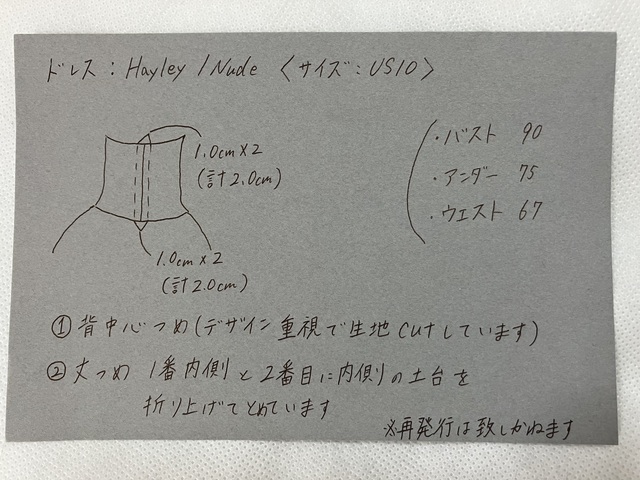 ドレス：Hayley / Nude 〈サイズ：US10〉
1.0cm×2
(計2.0cm)
・バスト 90
・アンダー 75
・ウエスト 67
1.0cm×2
(計2.0cm)
① 背中心つめ(デザイン重視で生地cutしています)
② 丈つめ 1番内側と2番目に内側の土台を
折り上げてとめています
※再発行は致しかねます